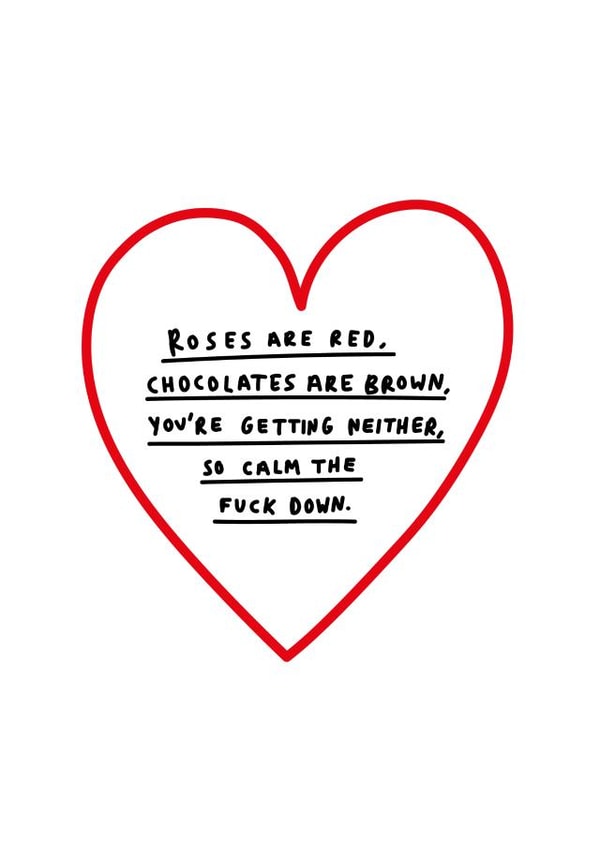 ROSES ARE RED.
CHOCOLATES ARE BROWN,
YOU'RE GETTING NEITHER,
SO CALM THE
FUCK DOWN.